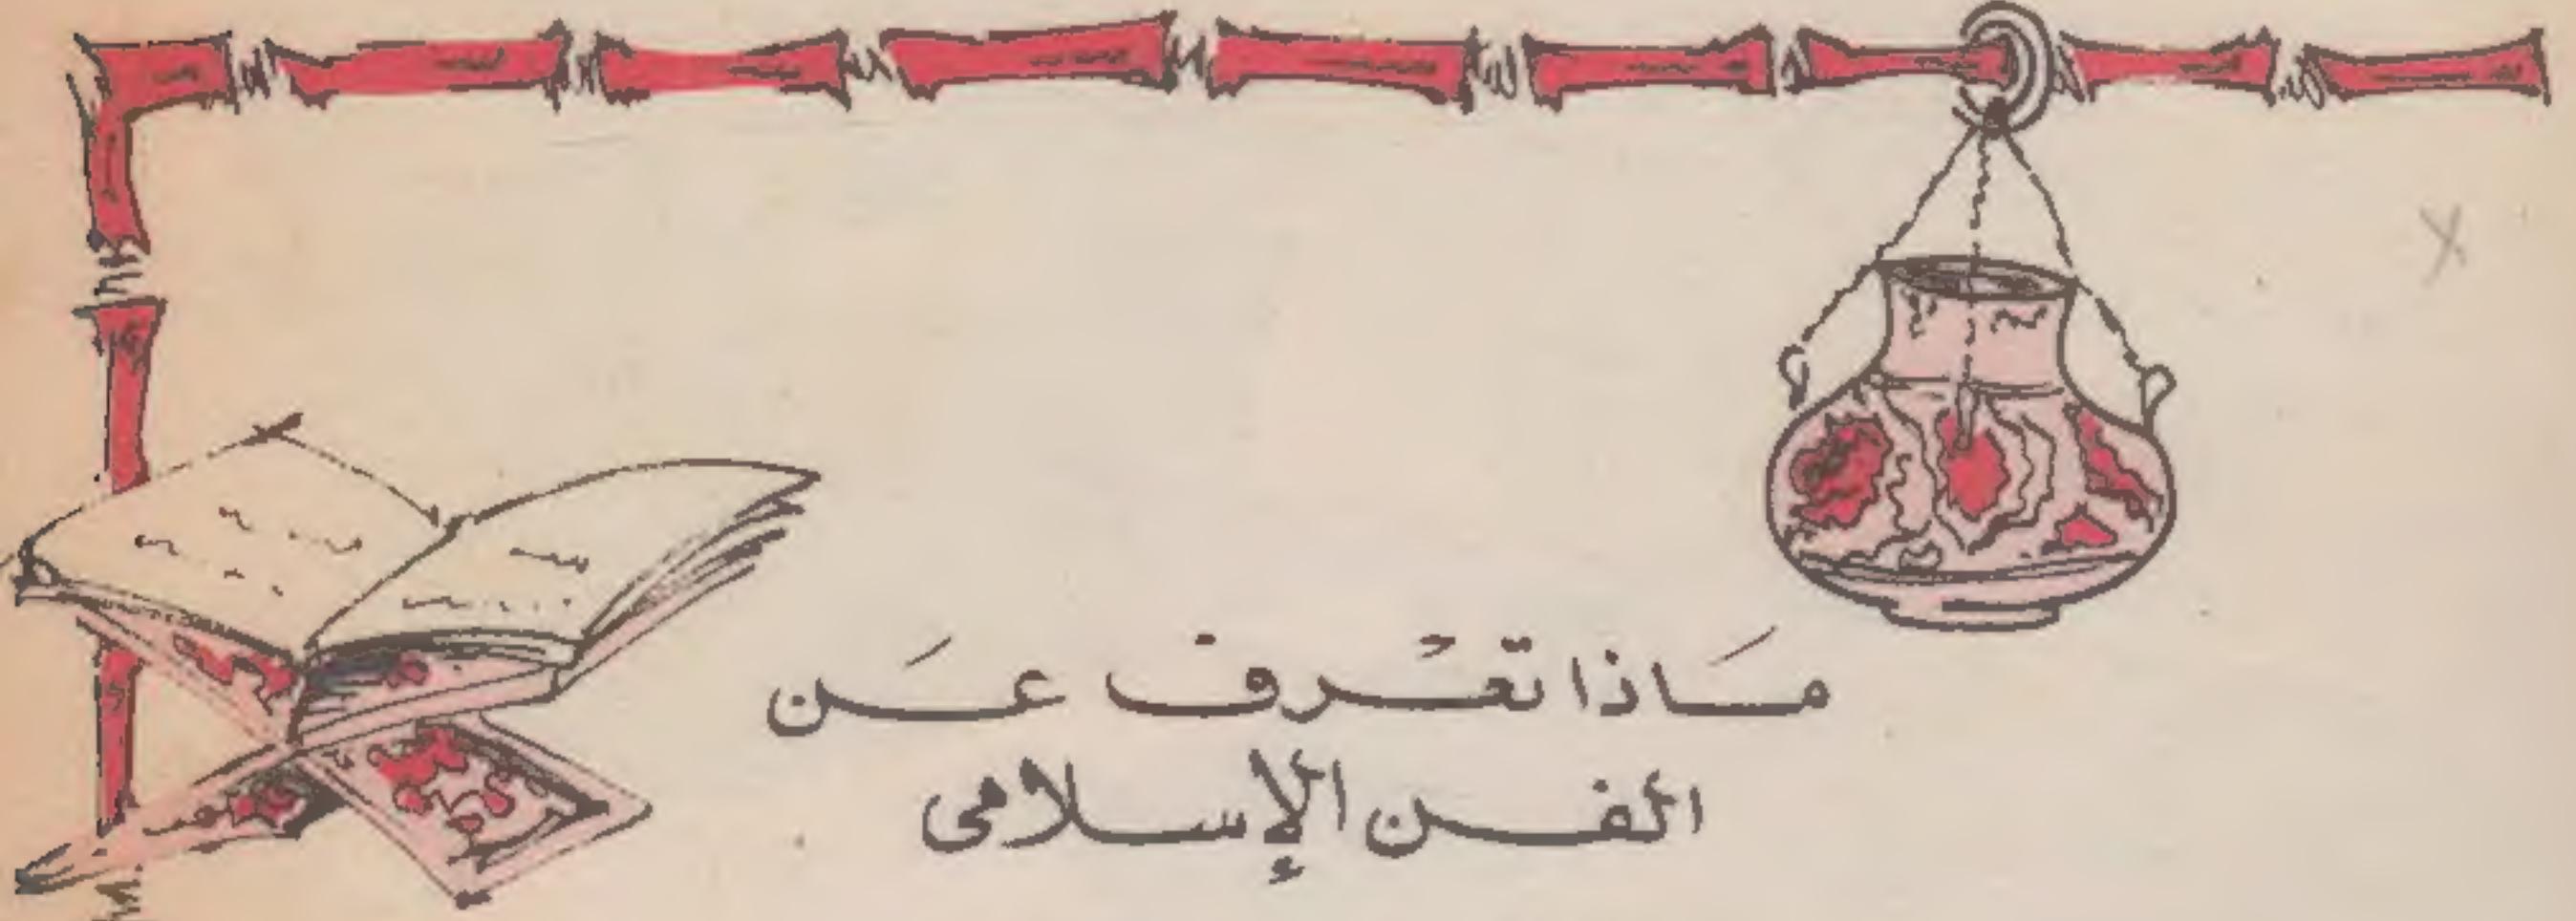 مَاذا تعْرف عَن
الفن الإسلامى